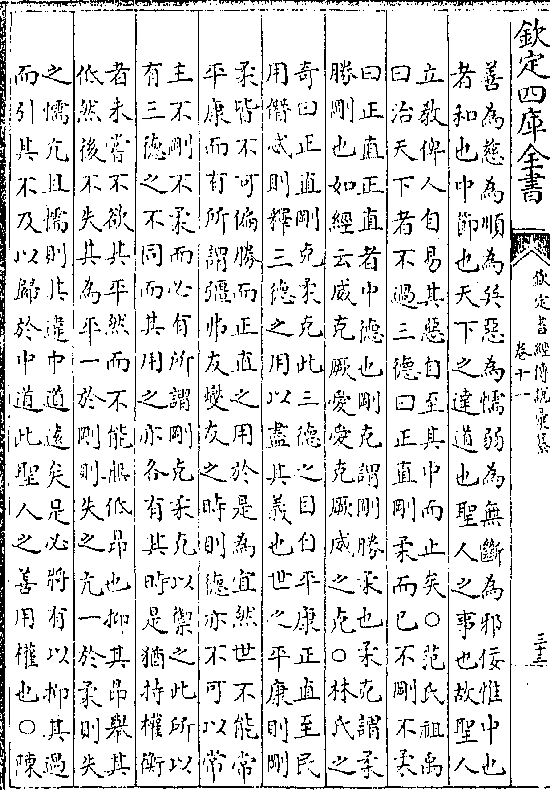 欽定四庫全書
欽定書經傳說彙纂
卷十一
三十三
善為慈為順為巽惡為懦弱為無斷為邪佞惟中也
者和也中節也天下之達道也聖人之事也故聖人
立教俾人自易其惡自至其中而止矣○范氏祖禹
曰治天下者不過三德曰正直剛柔而已不剛不柔
曰正直正直者中德也剛克謂剛勝柔也柔克謂柔
勝剛也如經云威克厥愛愛克厥威之克○林氏之
奇曰正直剛克柔克此三德之目自平康正直至民
用僭忒則釋三德之用以盡其義也世之平康則剛
柔皆不可偏勝而正直之用於是為宜然世不能常
平康而有所謂彊弗友燮友之時則德亦不可以常
主不剛不柔而必有所謂剛克柔克以禦之此所以
有三德之不同而其用之亦各有其時是猶持權衡
者未嘗不欲其平然而不能無低昂也抑其昂舉其
低然後不失其為平一於剛則失之亢一於柔則失
之懦亢且懦則其違中道遠矣是必將有以抑其過
而引其不及以歸於中道此聖人之善用權也○陳